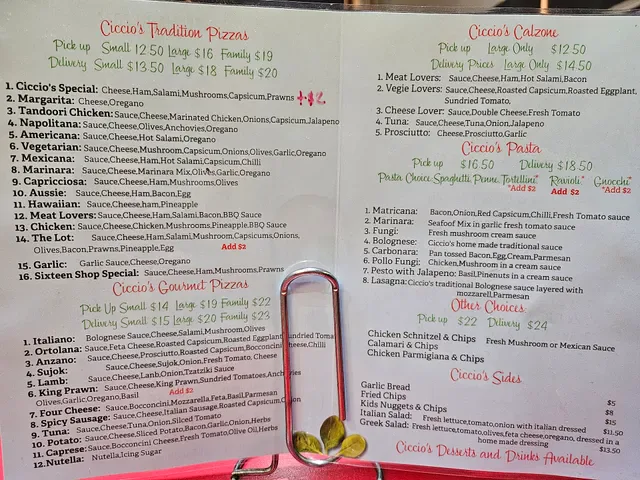 Ciccio's Tradition Pizzas
Pick up Small 12 50 Large $16 Family $19
Delivery Small $13.50 Large $18 Family $20
1. Ciccio's Special: Cheese,Ham,Salami,Mushrooms,Capsicum,Prawns ++$2
2. Margarita: Cheese,Oregano
3. Tandoori Chicken: Sauce,Cheese,Marinated Chicken,Onions,Capsicum,Jalapeno
4. Napolitana: Sauce,Cheese,Olives,Anchovies,Oregano
5. Americana: Sauce,Cheese,Hot Salami,Oregano
6. Vegetarian: Sauce,Cheese,Mushroom,Capsicum,Onions,Olives,Garlic,Oregano
7. Mexicana: Sauce,Cheese,Ham,Hot Salami,Capsicum,Chilli
8. Marinara: Sauce,Cheese,Marinara Mix,Olives,Garlic,Oregano
9. Capricciosa: Sauce,Cheese,Ham,Mushrooms,Olives
10. Aussie: Sauce,Cheese,Ham,Bacon,Egg
11. Hawaiian: Sauce,Cheese,ham,Pineapple
12. Meat Lovers: Sauce,Cheese,Ham,Salami,Bacon,BBQ Sauce
13. Chicken: Sauce,Cheese,Chicken,Mushrooms,Pineapple,BBQ Sauce
14. The Lot: Sauce,Cheese,Ham,Salami,Mushroom,Capsicums,Onions,
Olives,Bacon,Prawns,Pineapple,Egg Add $2
15. Garlic: Garlic Sauce,Cheese,Oregano
16. Sixteen Shop Special: Sauce,Cheese,Ham,Mushrooms,Prawns
Ciccio's Gourmet Pizzas
Pick Up Small $14 Large $19 Family $22
Delivery Small $15 Large $20 Family $23
1. Italiano: Bolognese Sauce,Cheese,Salami,Mushroom,Olives
2. Ortolana: Sauce,Feta Cheese,Roasted Capsicum,Roasted Eggplant,Sundried Tomato
3. Anzano: Sauce,Cheese,Prosciutto,Roasted Capsicum,Bocconcini Cheese,Chilli
4. Sujok: Sauce,Cheese,Sujok,Onion,Fresh Tomato, Cheese
5. Lamb: Sauce,Cheese,Lamb,Onion,Tzatziki Sauce
6. King Prawn: Sauce,Cheese,King Prawn,Sundried Tomatoes,Anchovies
Olives,Garlic,Oregano,Basil Add $2
7. Four Cheese: Sauce,Bocconcini,Mozzarella,Feta,Basil,Parmesan
8. Spicy Sausage: Sauce,Cheese,Italian Sausage,Roasted Capsicum,Onion
9. Tuna: Sauce,Cheese,Tuna,Onion,Sliced Tomato
10. Potato: Sauce,Cheese,Sliced Potato,Bacon,Garlic,Onion,Herbs
11. Caprese: Sauce,Bocconcini Cheese,Fresh Tomato,Olive Oil,Herbs
12.Nutella: Nutella,Icing Sugar
Ciccio's Calzone
Pick up Large Only $12.50
Delivery Prices Large Only $14.50
1. Meat Lovers: Sauce,Cheese,Ham,Hot Salami,Bacon
2. Vegie Lovers: Sauce,Cheese,Roasted Capsicum,Roasted Eggplant,
Sundried Tomato,
3. Cheese Lover: Sauce,Double Cheese,Fresh Tomato
4. Tuna: Sauce,Cheese,Tuna,Onion,Jalapeno
5. Prosciutto: Cheese,Prosciutto,Garlic
Ciccio's Pasta
Pick up $16.50 Delivery $18.50
Pasta Choice: Spaghetti Penne Tortellini* Ravioli* Gnocchi*
*Add $2 Add $2 *Add $2
1. Matricana: Bacon,Onion,Red Capsicum,Chilli,Fresh Tomato sauce
2. Marinara: Seafood Mix in garlic fresh tomato sauce
3. Fungi: Fresh mushroom cream sauce
4. Bolognese: Ciccio's home made traditional sauce
5. Carbonara: Pan tossed Bacon,Egg,Cream,Parmesan
6. Pollo Fungi: Chicken,Mushroom in a cream sauce
7. Pesto with Jalapeno: Basil,Pinenuts in a cream sauce
8. Lasagna: Ciccio's traditional Bolognese sauce layered with
mozzarell,Parmesan
Other Choices
Pick up $22 Delivery $24
Chicken Schnitzel & Chips Fresh Mushroom or Mexican Sauce
Calamari & Chips
Chicken Parmigiana & Chips
Ciccio's Sides
Garlic Bread $5
Fried Chips $8
Kids Nuggets & Chips $15
Italian Salad: Fresh lettuce,tomato,onion with italian dressed $11.50
Greek Salad: Fresh lettuce,tomato,olives,feta cheese,oregano, dressed in a
home made dressing $13.50
Ciccio's Desserts and Drinks Available